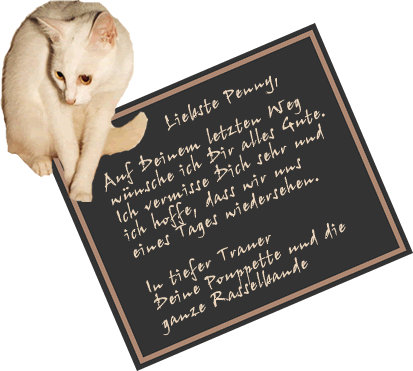 Liebste Penny,
Auf Deinem letzten Weg
wünsche ich Dir alles Gute.
Ich vermisse Dich sehr und
ich hoffe, dass wir uns
eines Tages wiedersehen.
In tiefer Trauer
Deine Pouppette und die
ganze Rasselbande